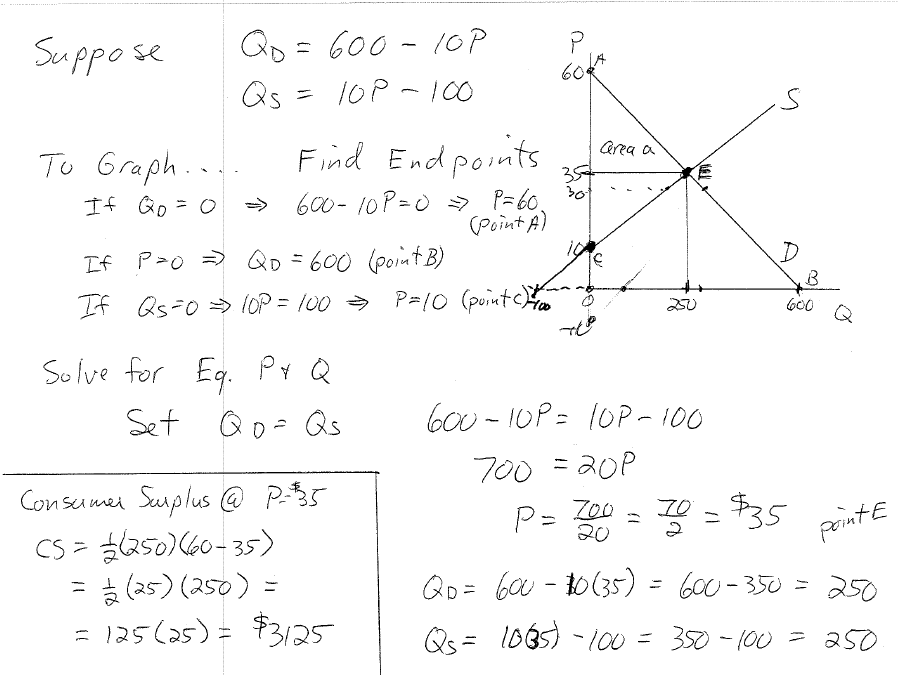 Suppose QD = 600 - 10P
QS = 10P - 100
To Graph.... Find Endpoints
If QD = 0 ⇒ 600 - 10P = 0 ⇒ P = 60
(point A)
If P = 0 ⇒ QD = 600 (point B)
If QS = 0 ⇒ 10P = 100 ⇒ P = 10 (point C)
P
60 A
S
area a
35 E
30
10
C
D
B
-100 0 250 600 Q
-10
Solve for Eq. P + Q
Set QD = QS 600 - 10P = 10P - 100
700 = 20P
P = 700/20 = 70/2 = $35 point E
QD = 600 - 10(35) = 600 - 350 = 250
QS = 10(35) - 100 = 350 - 100 = 250
Consumer Surplus @ P = $35
CS = 1/2(250)(60 - 35)
= 1/2(25)(250) =
= 125(25) = $3125